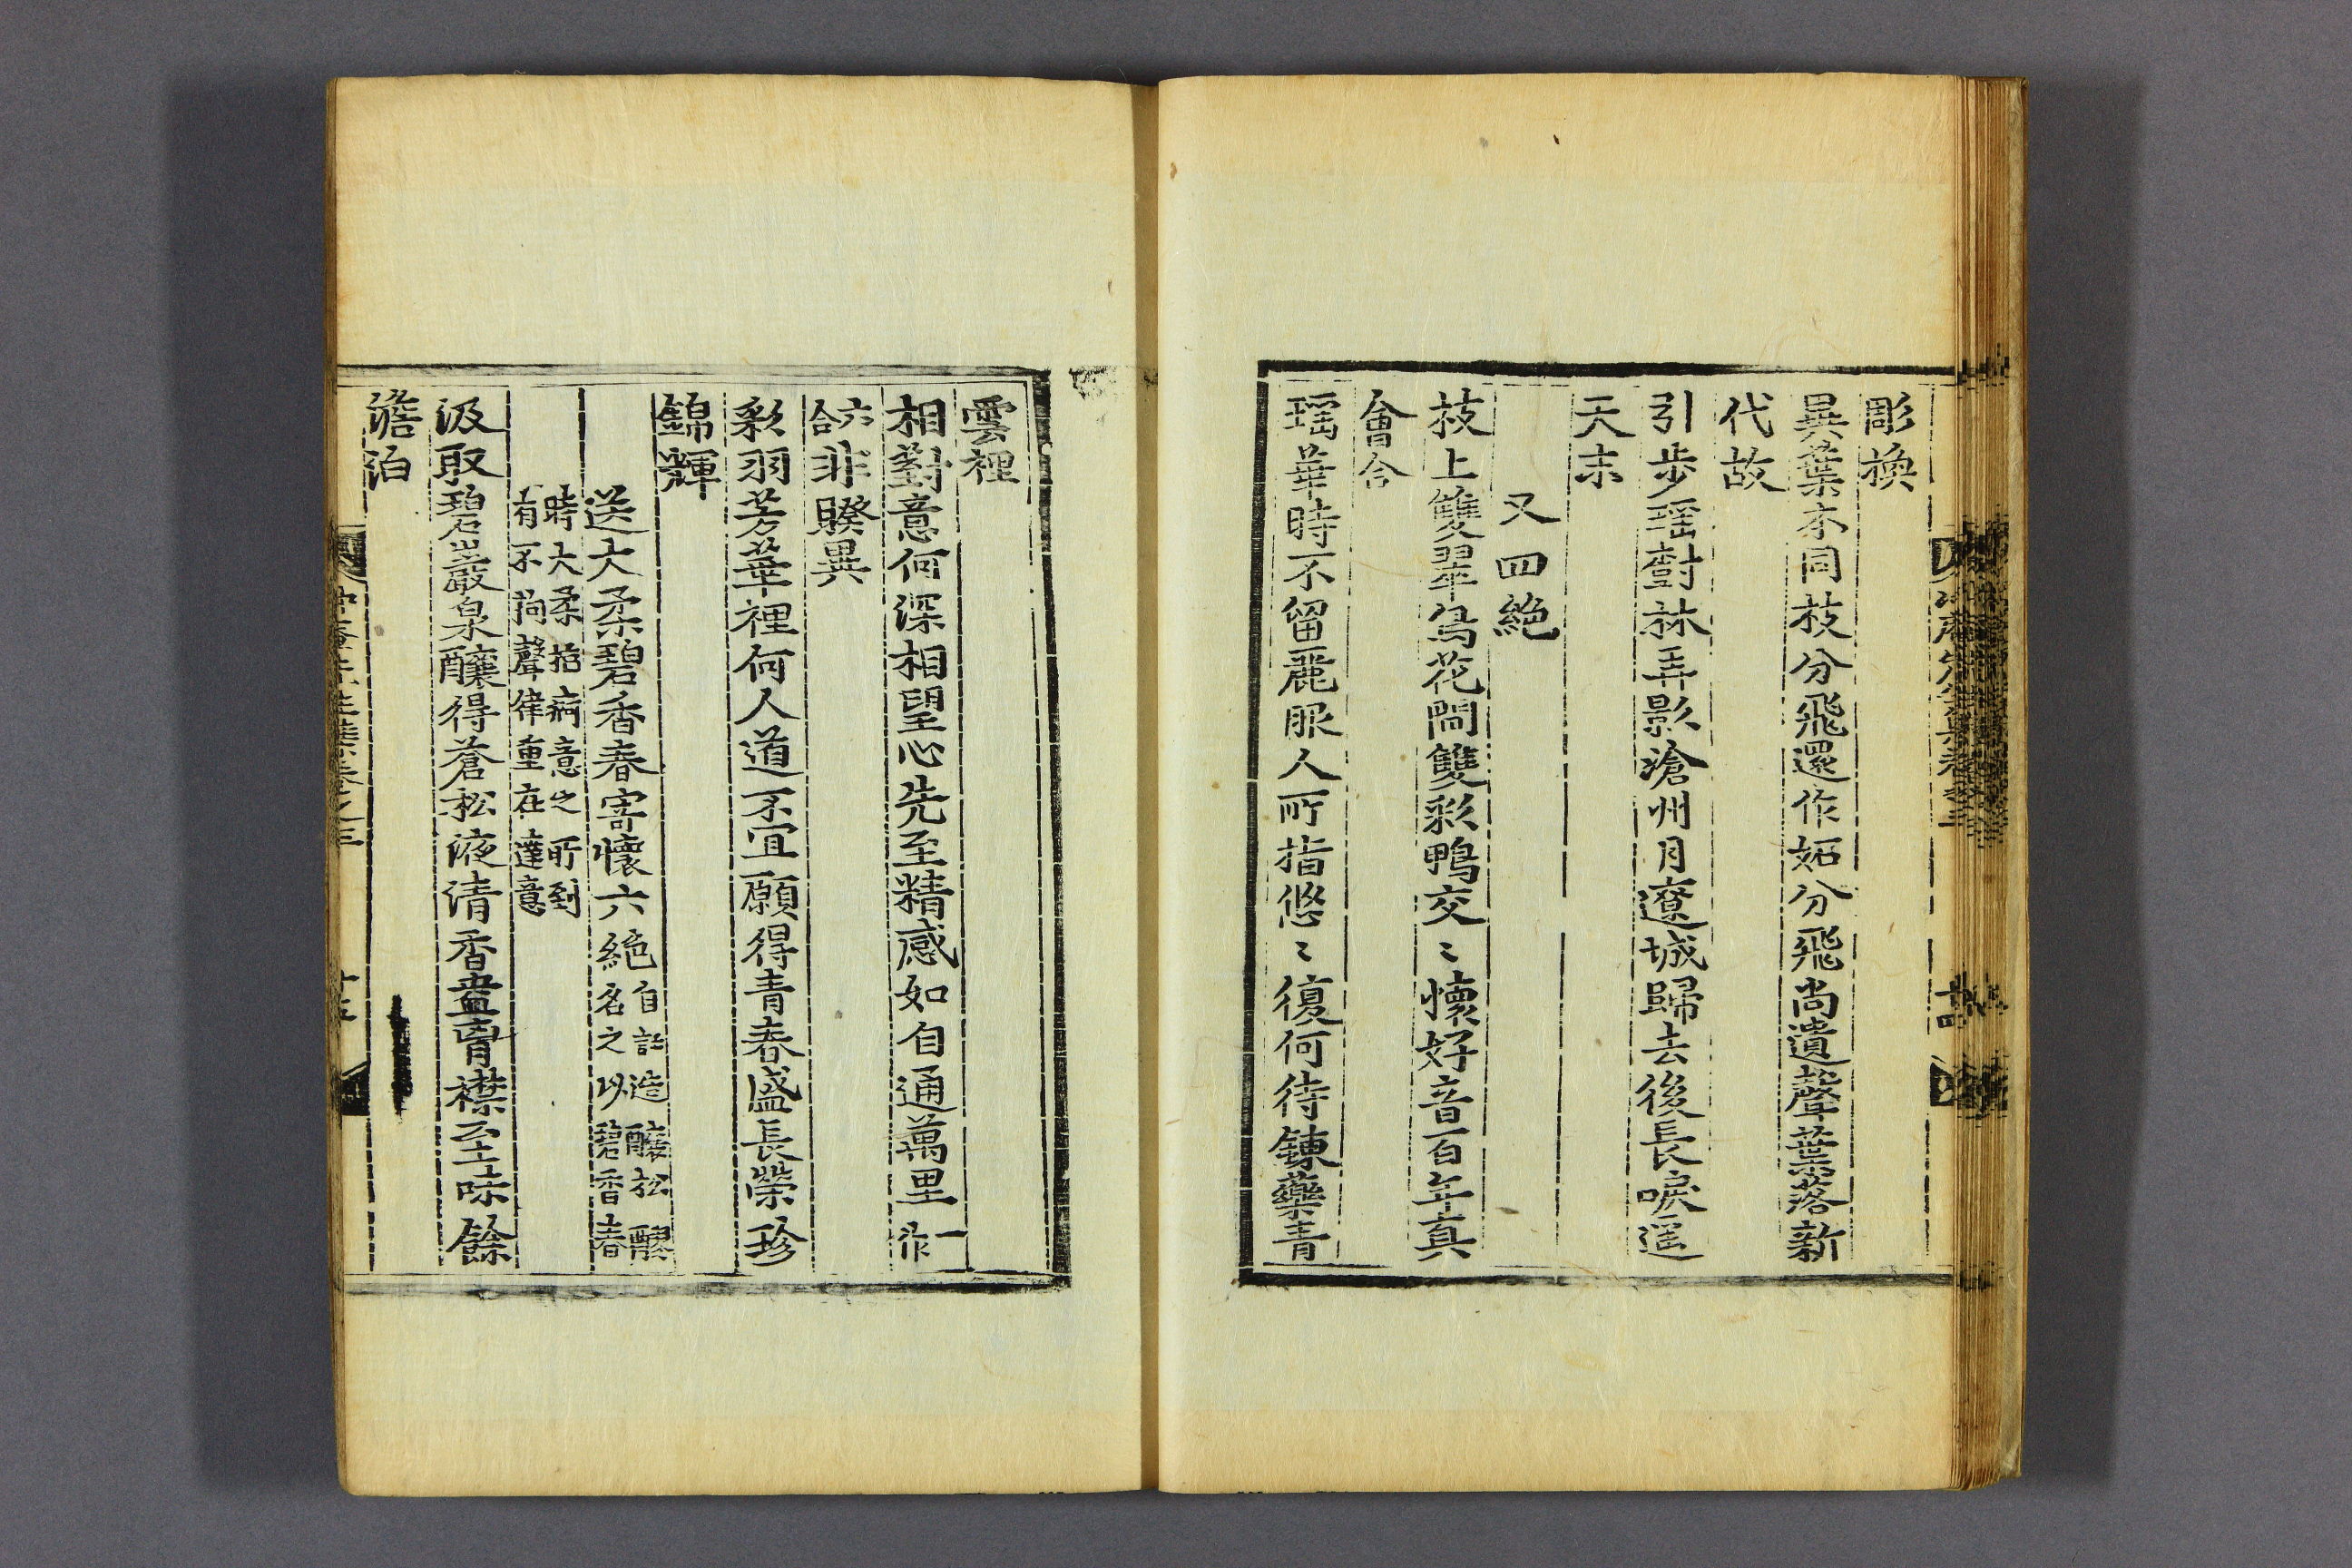 彫換
異葉本同枝分飛還作妬分飛尚遺聲葉落新
代故
引步瑶臺封弄影滄州月遼城歸去後長唳遥
天末
又四絶
枝上雙翠鳥花間雙彩鴨交〻懷好音百年真
會合
瑶華時不留麗眼人所指悠〻復何待鍊藥青
雲裡
相對意何深相望心先至精感如自通萬里一作
六合非暌異
彩羽芳華裡何人道不宜願得青春盛長榮珍
錦輝
送大柔碧香春寄懷六絶自註造釀松醪
名之以碧香春
時大柔指病意之所到
有不拘聲律重在達意
汲取碧巖泉釀得蒼松液清香盎胷襟至味餘
澹泊